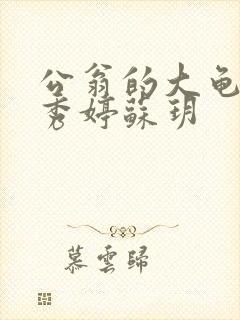 公翁的大龟
秀婷苏玥
慕雲歸